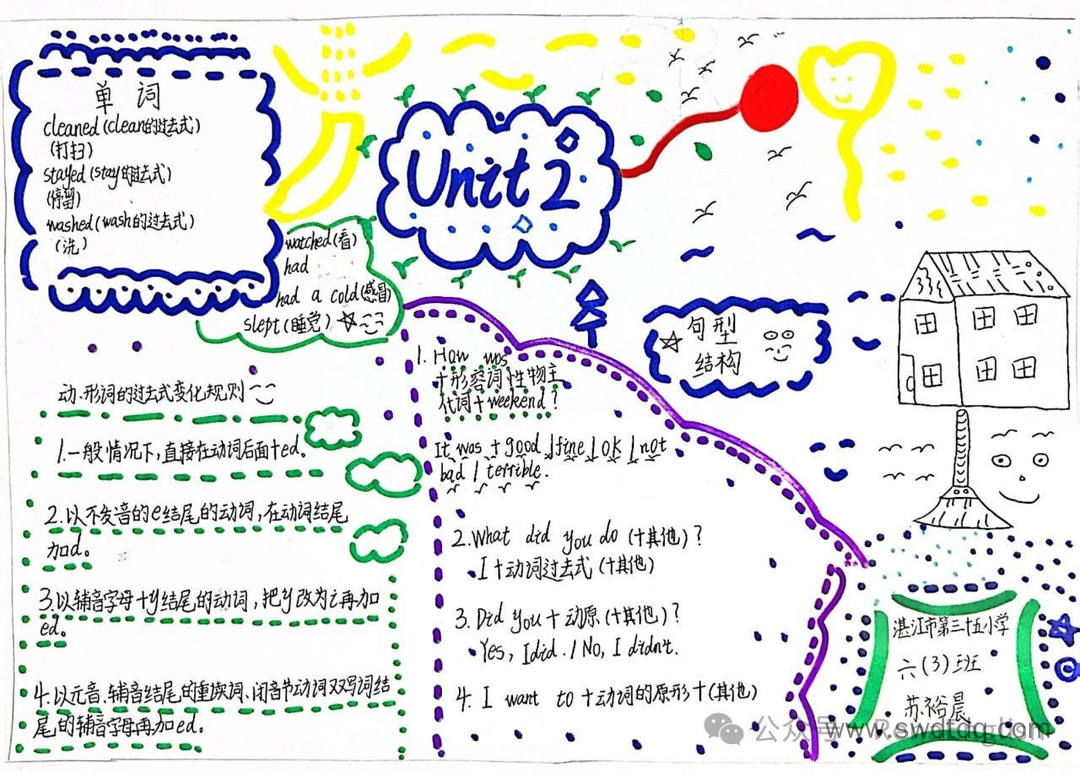 单词
cleaned (clean的过去式)
(打扫)
stayed (stay的过去式)
(停留)
washed (wash的过去式)
(洗)
watched (看)
had
had a cold (感冒)
slept (睡觉)
Unit 2
句型
结构
动.形词的过去式变化规则
1.一般情况下,直接在动词后面+ed。
2.以不发音的e结尾的动词,在动词结尾
加d。
3.以辅音字母+y结尾的动词,把y改为i再加
ed。
4.以元音.辅音结尾的重读词、闭音节动词双写词结
尾的辅音字母再加ed。
1. How was
+形容词性物主
代词+weekend?
It was + good / fine / ok / not
bad / terrible.
2.What did you do (+其他)?
I+动词过去式(+其他)
3. Did you+动原(+其他)?
Yes, I did. / No, I didn't.
4. I want to +动词的原形+(其他)
湛江市第三十五小学
六(3)班
苏裕晨
公众号
www.swdtdq.com